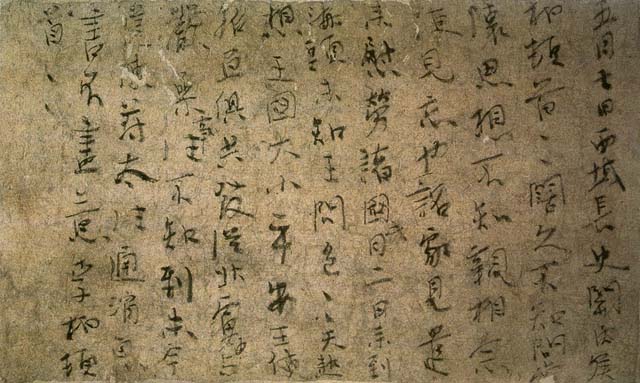 五月七日西域長史關內侯
柏頓首々々闊久不知問常
懷思想不知親相念
便見忘也詔家見遣
來慰勞諸國此月二日來到
海頭未知王問邑々天熱
想王國大小平安王使
招亘俱共發從北虜中
與嚴參事往不知到未今
遣使苻太往通消息
書不盡意李柏頓
首々々